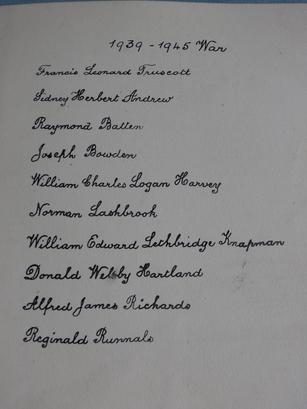 1939 - 1945 War
Francis Leonard Truscott
Sidney Herbert Andrew
Raymond Batten
Joseph Bowden
William Charles Logan Harvey
Norman Lashbrook
William Edward Lethbridge Knapman
Donald Welsby Hartland
Alfred James Richards
Reginald Runnals